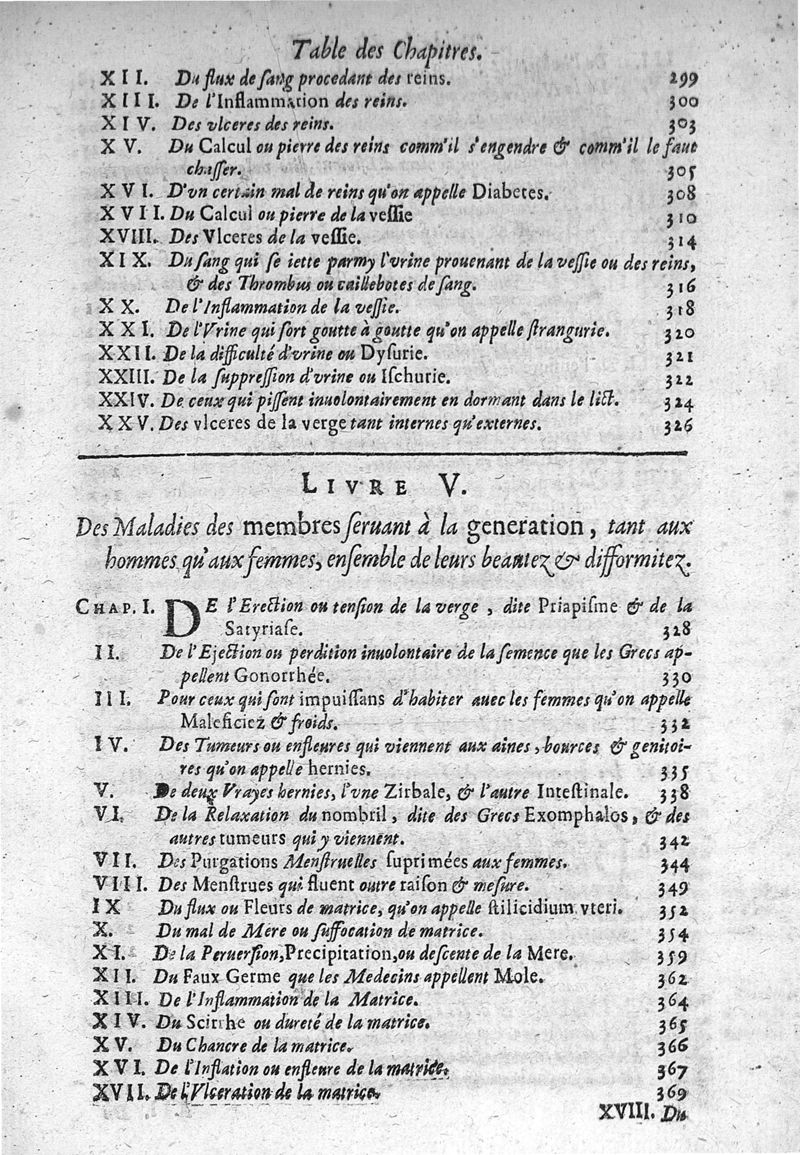 Table des Chapitres.
XII. Du flux de ſang procedant des reins. 299
XIII. De l'Inflammation des reins. 300
XIV. Des vlceres des reins. 303
XV. Du Calcul ou pierre des reins comm'il s'engendre & comm'il le faut
chaſſer. 305
XVI. D'vn certain mal de reins qu'on appelle Diabetes. 308
XVII. Du Calcul ou pierre de la veſſie 310
XVIII. Des Vlceres de la veſſie. 314
XIX. Du ſang qui ſe iette parmy l'vrine prouenant de la veſſie ou des reins,
& des Thrombus ou caillebotes de ſang. 316
XX. De l'Inflammation de la veſſie. 318
XXI. De l'Vrine qui ſort goutte à goutte qu'on appelle ſtrangurie. 320
XXII. De la difficulté d'vrine ou Dyſurie. 321
XXIII. De la ſuppreſſion d'vrine ou Iſchurie. 322
XXIV. De ceux qui piſſent inuolontairement en dormant dans le lict. 324
XXV. Des vlceres de la verge tant internes qu'externes. 326
LIVRE V.
Des Maladies des membres ſeruant à la generation, tant aux
hommes qu'aux femmes, enſemble de leurs beautez & difformitez.
CHAP. I. DE l'Erection ou tenſion de la verge, dite Priapiſme & de la
Satyriaſe. 328
II. De l'Ejection ou perdition inuolontaire de la ſemence que les Grecs ap-
pellent Gonorrhée. 330
III. Pour ceux qui ſont impuiſſans d'habiter auec les femmes qu'on appelle
Maleficiez & froids. 332
IV. Des Tumeurs ou enfleures qui viennent aux aines, bources & genitoi-
res qu'on appelle hernies. 335
V. De deux Vrayes hernies, l'vne Zirbale, & l'autre Inteſtinale. 338
VI. De la Relaxation du nombril, dite des Grecs Exomphalos, & des
autres tumeurs qui y viennent. 342
VII. Des Purgations Menſtruelles ſuprimées aux femmes. 344
VIII. Des Menſtrues qui fluent outre raiſon & meſure. 349
IX Du flux ou Fleurs de matrice, qu'on appelle ſtilicidium vteri. 352
X. Du mal de Mere ou ſuffocation de matrice. 354
XI. De la Peruerſion, Precipitation, ou deſcente de la Mere. 359
XII. Du Faux Germe que les Medecins appellent Mole. 362
XIII. De l'Inflammation de la Matrice. 364
XIV. Du Scirrhe ou dureté de la matrice. 365
XV. Du Chancre de la matrice. 366
XVI. De l'Inflation ou enfleure de la matrice. 367
XVII. De l'Vlceration de la matrice. 369
XVIII. Du